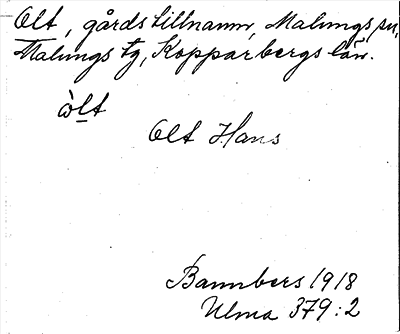 Olt, gårdstillnamn, Malungs sn,
Malungs tg, Kopparbergs län.
òlt
Olt Hans
Bannbers 1918
Ulma 379:2